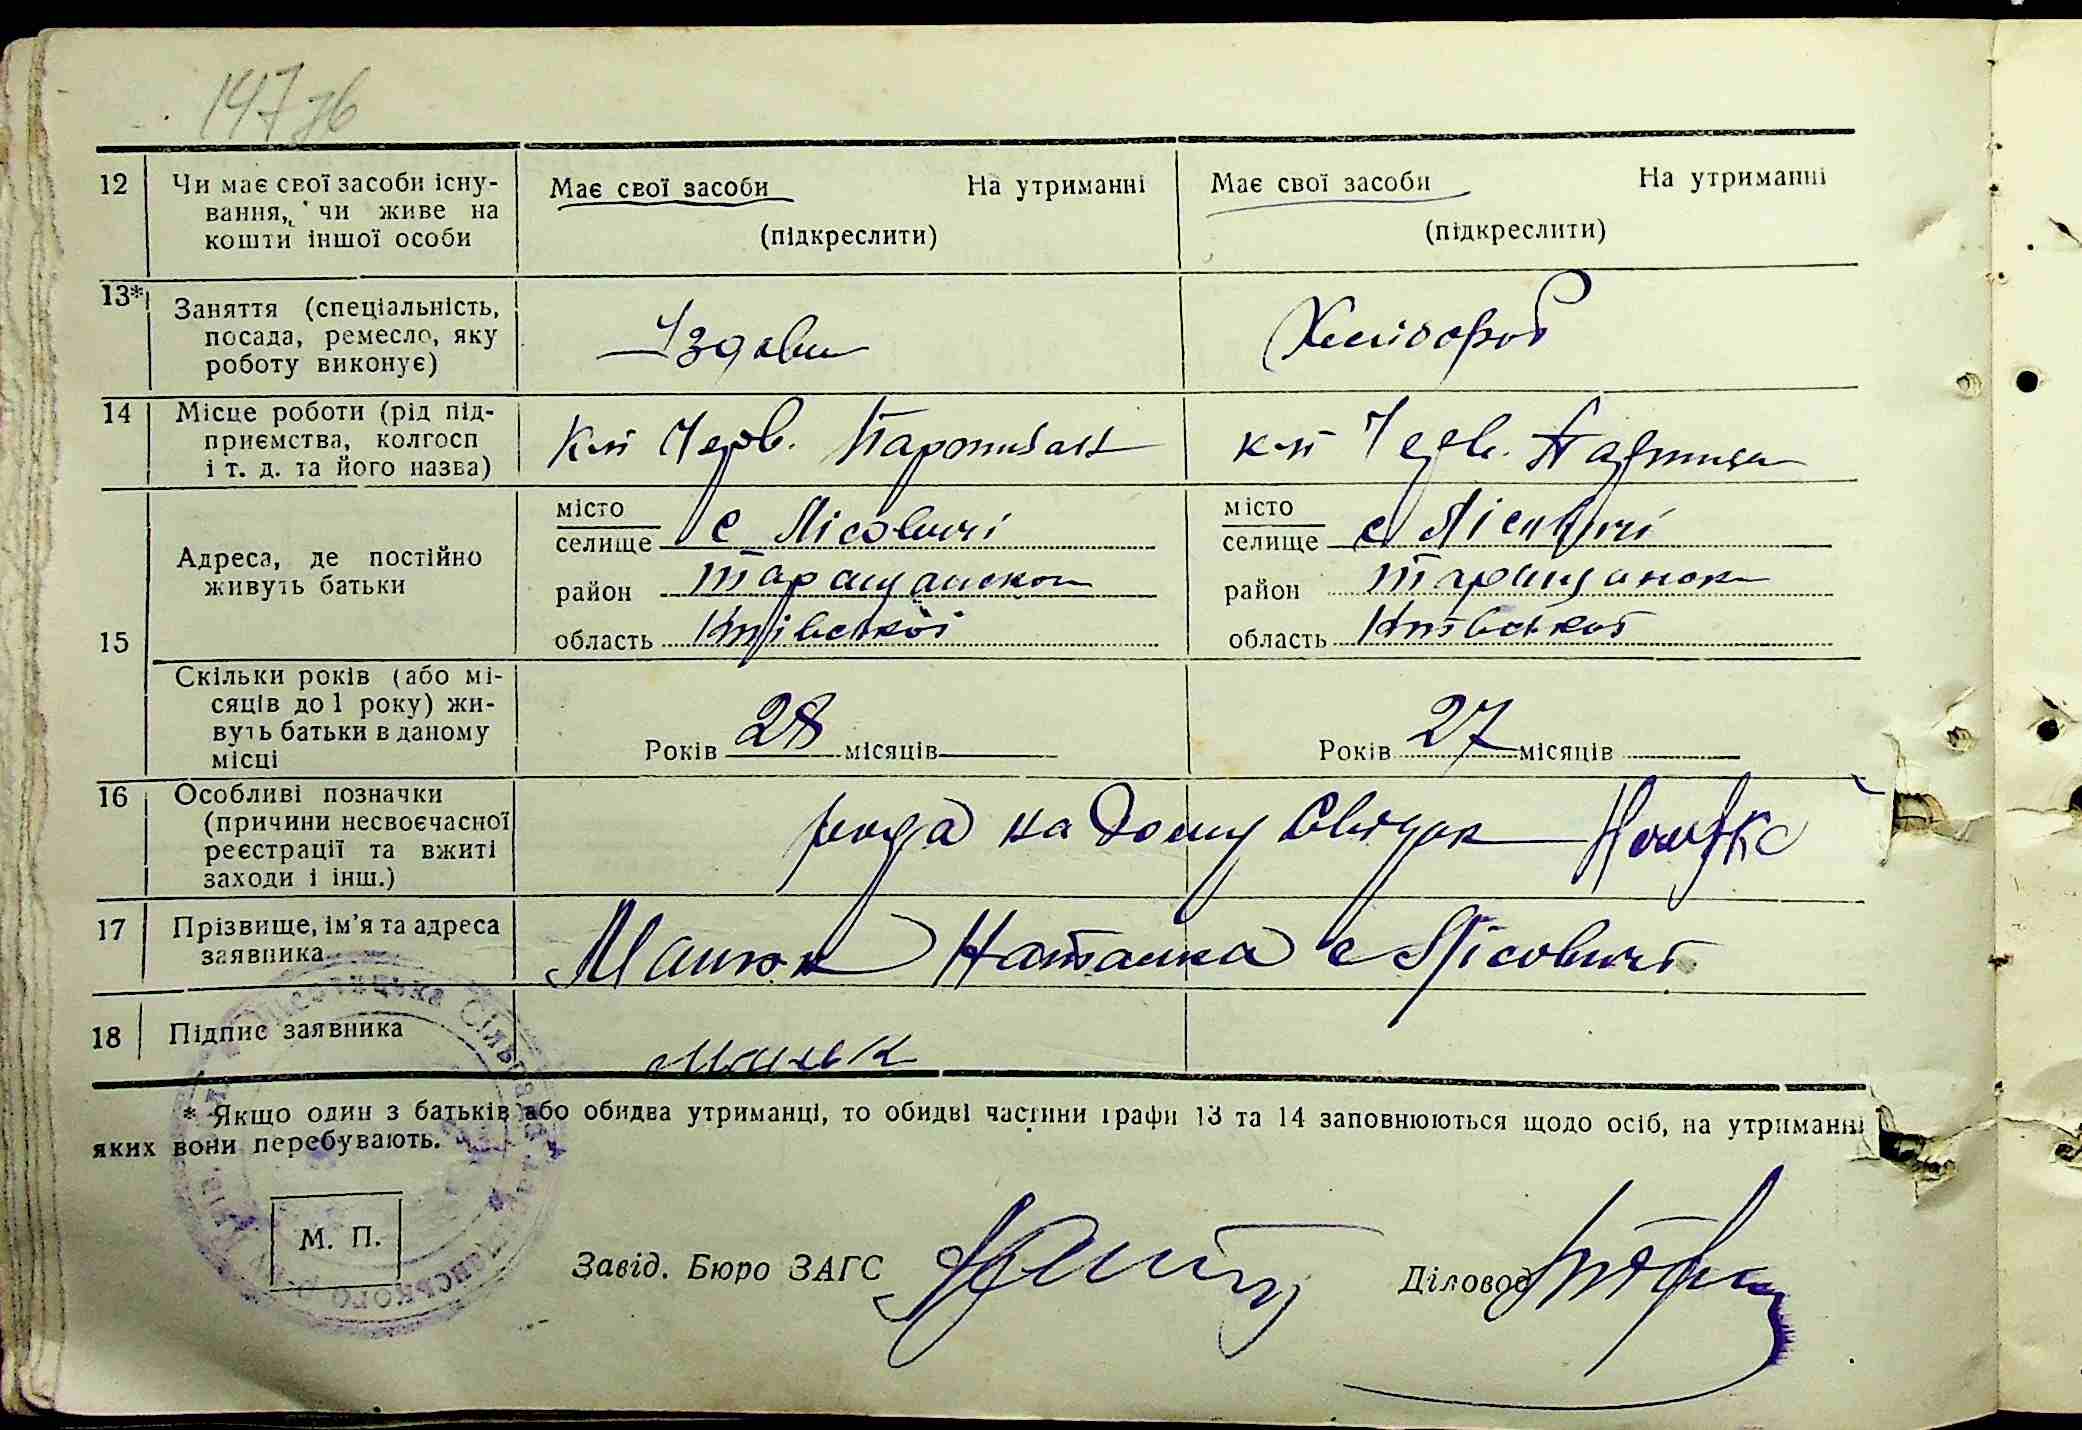 147 зв
12 Чи має свої засоби існу-
вання, чи живе на
кошти іншої особи
Має свої засоби На утриманні
(підкреслити)
Має свої засоби На утриманні
(підкреслити)
13* Заняття (спеціальність,
посада, ремесло, яку
роботу виконує)
Їздовий
Хлібороб
14 Місце роботи (рід під-
приємства, колгосп
і т. д. та його назва)
Кл Черв. Партизан
кл Черв. Партизан
15 Адреса, де постійно
живуть батьки
місто
селище с Лісовичі
район Таращанског
область Київської
місто
селище с Лісовичі
район Таращанськ
область Київської
Скільки років (або мі-
сяців до 1 року) жи-
вуть батьки в даному
місці
Років 28 місяців
Років 27 місяців
16 Особливі позначки
(причини несвоєчасної
реєстрації та вжиті
заходи і інш.)
на дому
17 Прізвище, ім'я та адреса
заявника
Наталка с Лісовичі
18 Підпис заявника
* Якщо один з батьків або обидва утриманці, то обидві частини графи 13 та 14 заповнюються щодо осіб, на утриманні
яких вони перебувають.
М. П.
Завід. Бюро ЗАГС
Діловод